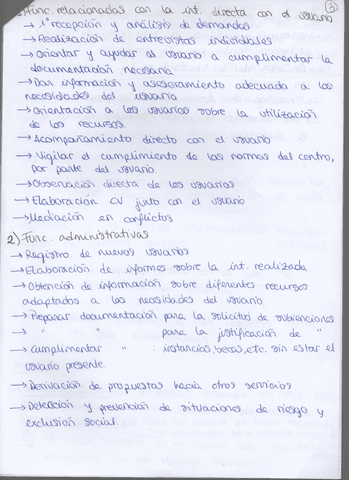 3
1) Func. relacionadas con la int. directa con el usuario
→ 1ª recepción y análisis de demandas
→ Realización de entrevistas individuales
→ Orientar y ayudar al usuario a cumplimentar la
documentación necesaria
→ Dar información y asesoramiento adecuado a las
necesidades del usuario
→ Orientación a los usuarios sobre la utilización
de los recursos.
→ Acompañamiento directo con el usuario
→ Vigilar el cumplimiento de las normas del centro,
por parte del usuario
→ Observación directa de los usuarios
→ Elaboración CV junto con el usuario
→ Mediación en conflictos
2) Func. administrativas
→ Registro de nuevos usuarios
→ Elaboración de informes sobre la int. realizada
→ Obtención de información sobre diferentes recursos
adaptados a las necesidades del usuario
→ Preparar documentación para la solicitud de subvenciones
→ " " para la justificación de "
→ Cumplimentar " instancias, becas, etc. sin estar el
usuario presente.
→ Derivación de propuestas hacia otros servicios
→ Detección y prevención de situaciones de riesgo y
exclusión social.